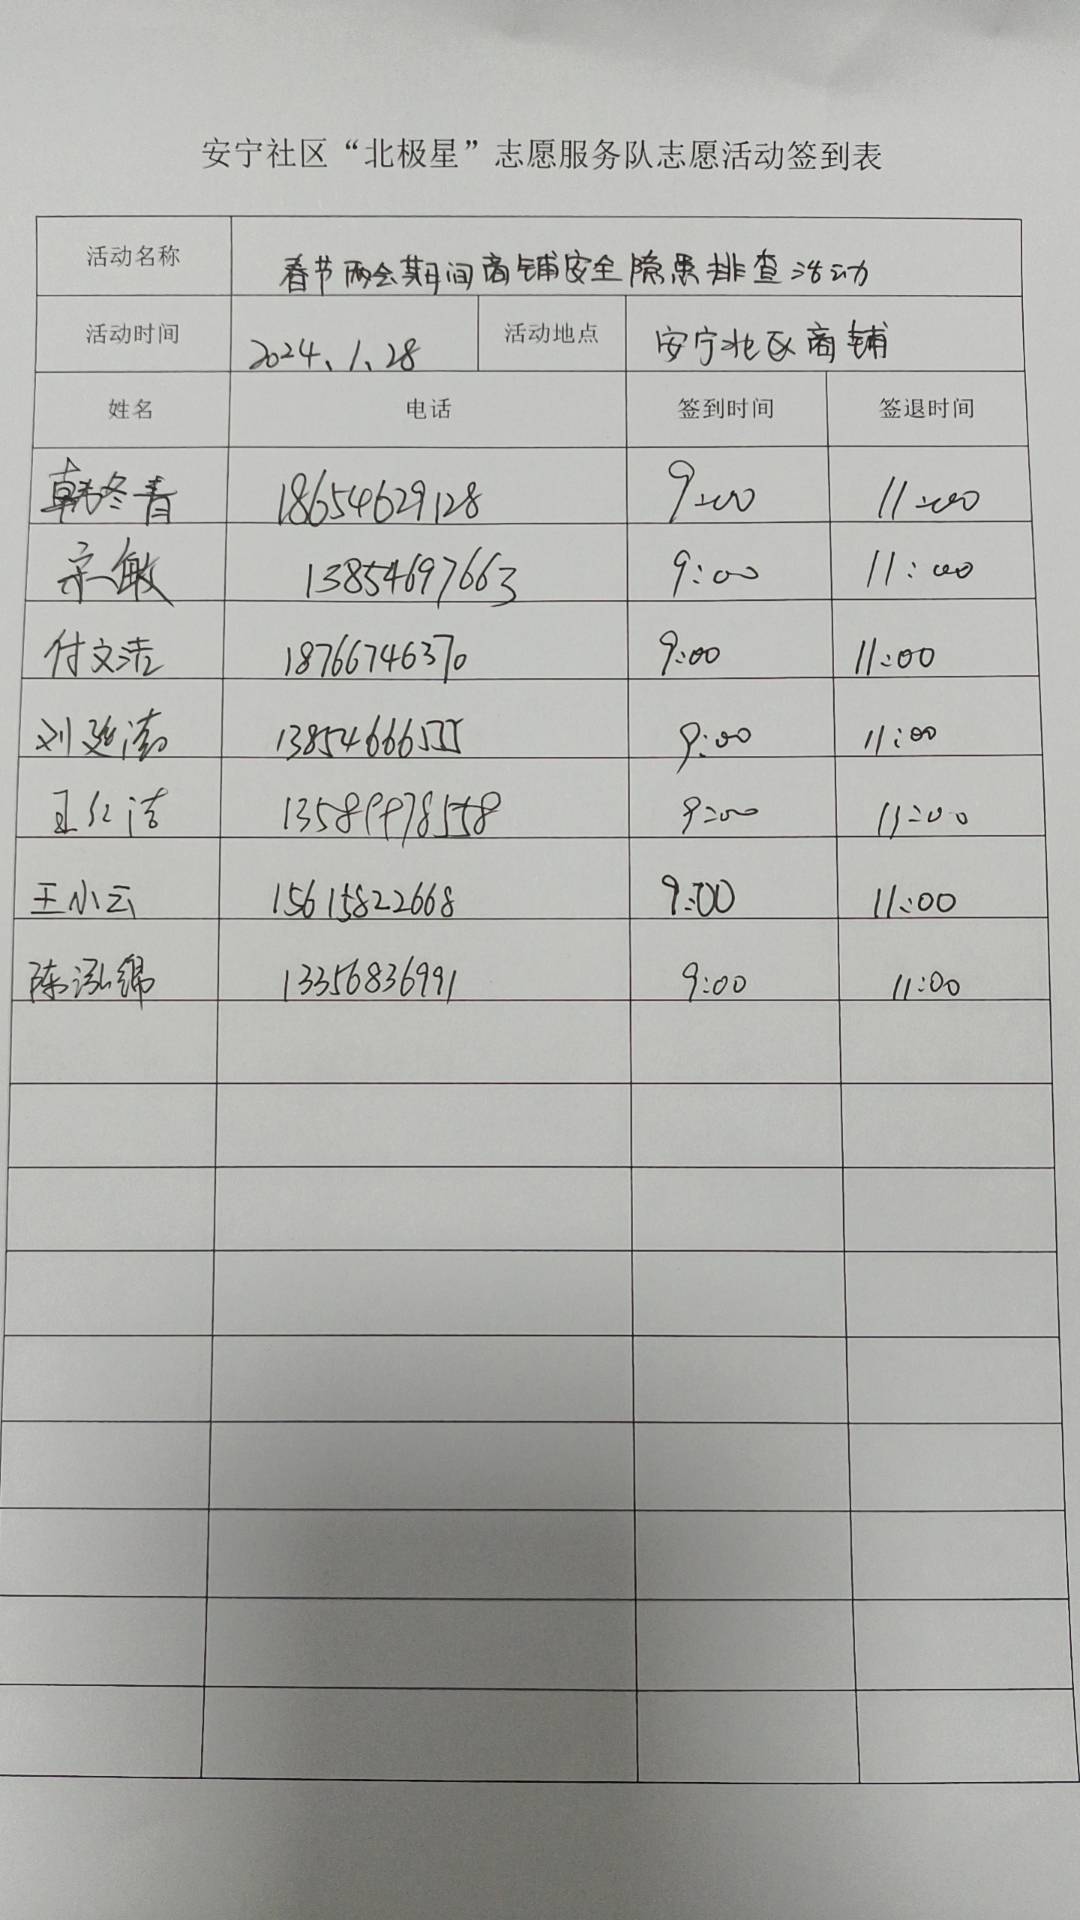 安宁社区“北极星”志愿服务队志愿活动签到表
活动名称 春节两会期间商铺安全隐患排查活动
活动时间 2024、1、28 活动地点 安宁北区商铺
姓名 电话 签到时间 签退时间
韩冬青 18654629128 9:00 11:00
宋敏 13854697663 9:00 11:00
付文浩 18766746370 9:00 11:00
刘延涛 13854666555 9:00 11:00
王红洁 9:00 11:00
王小云 15615822668 9:00 11:00
陈泓锦 13356836991 9:00 11:00